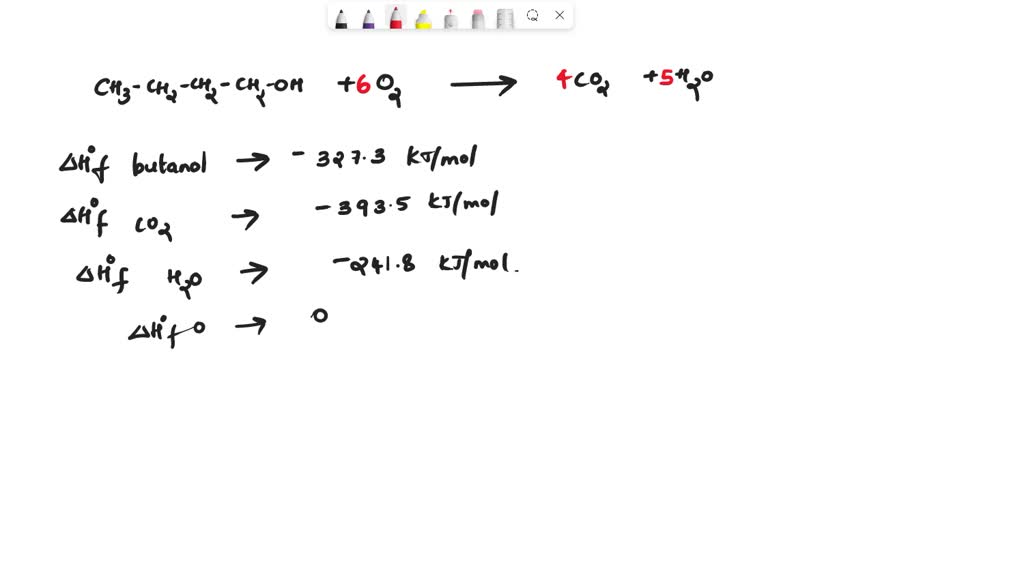 CH₃-CH₂-CH₂-CH₂-OH +6O₂ ⟶ 4CO₂ +5H₂O
ΔH°f butanol → -327.3 KJ/mol
ΔH°f CO₂ → -393.5 KJ/mol
ΔH°f H₂O → -241.8 KJ/mol.
ΔH°f O → 0